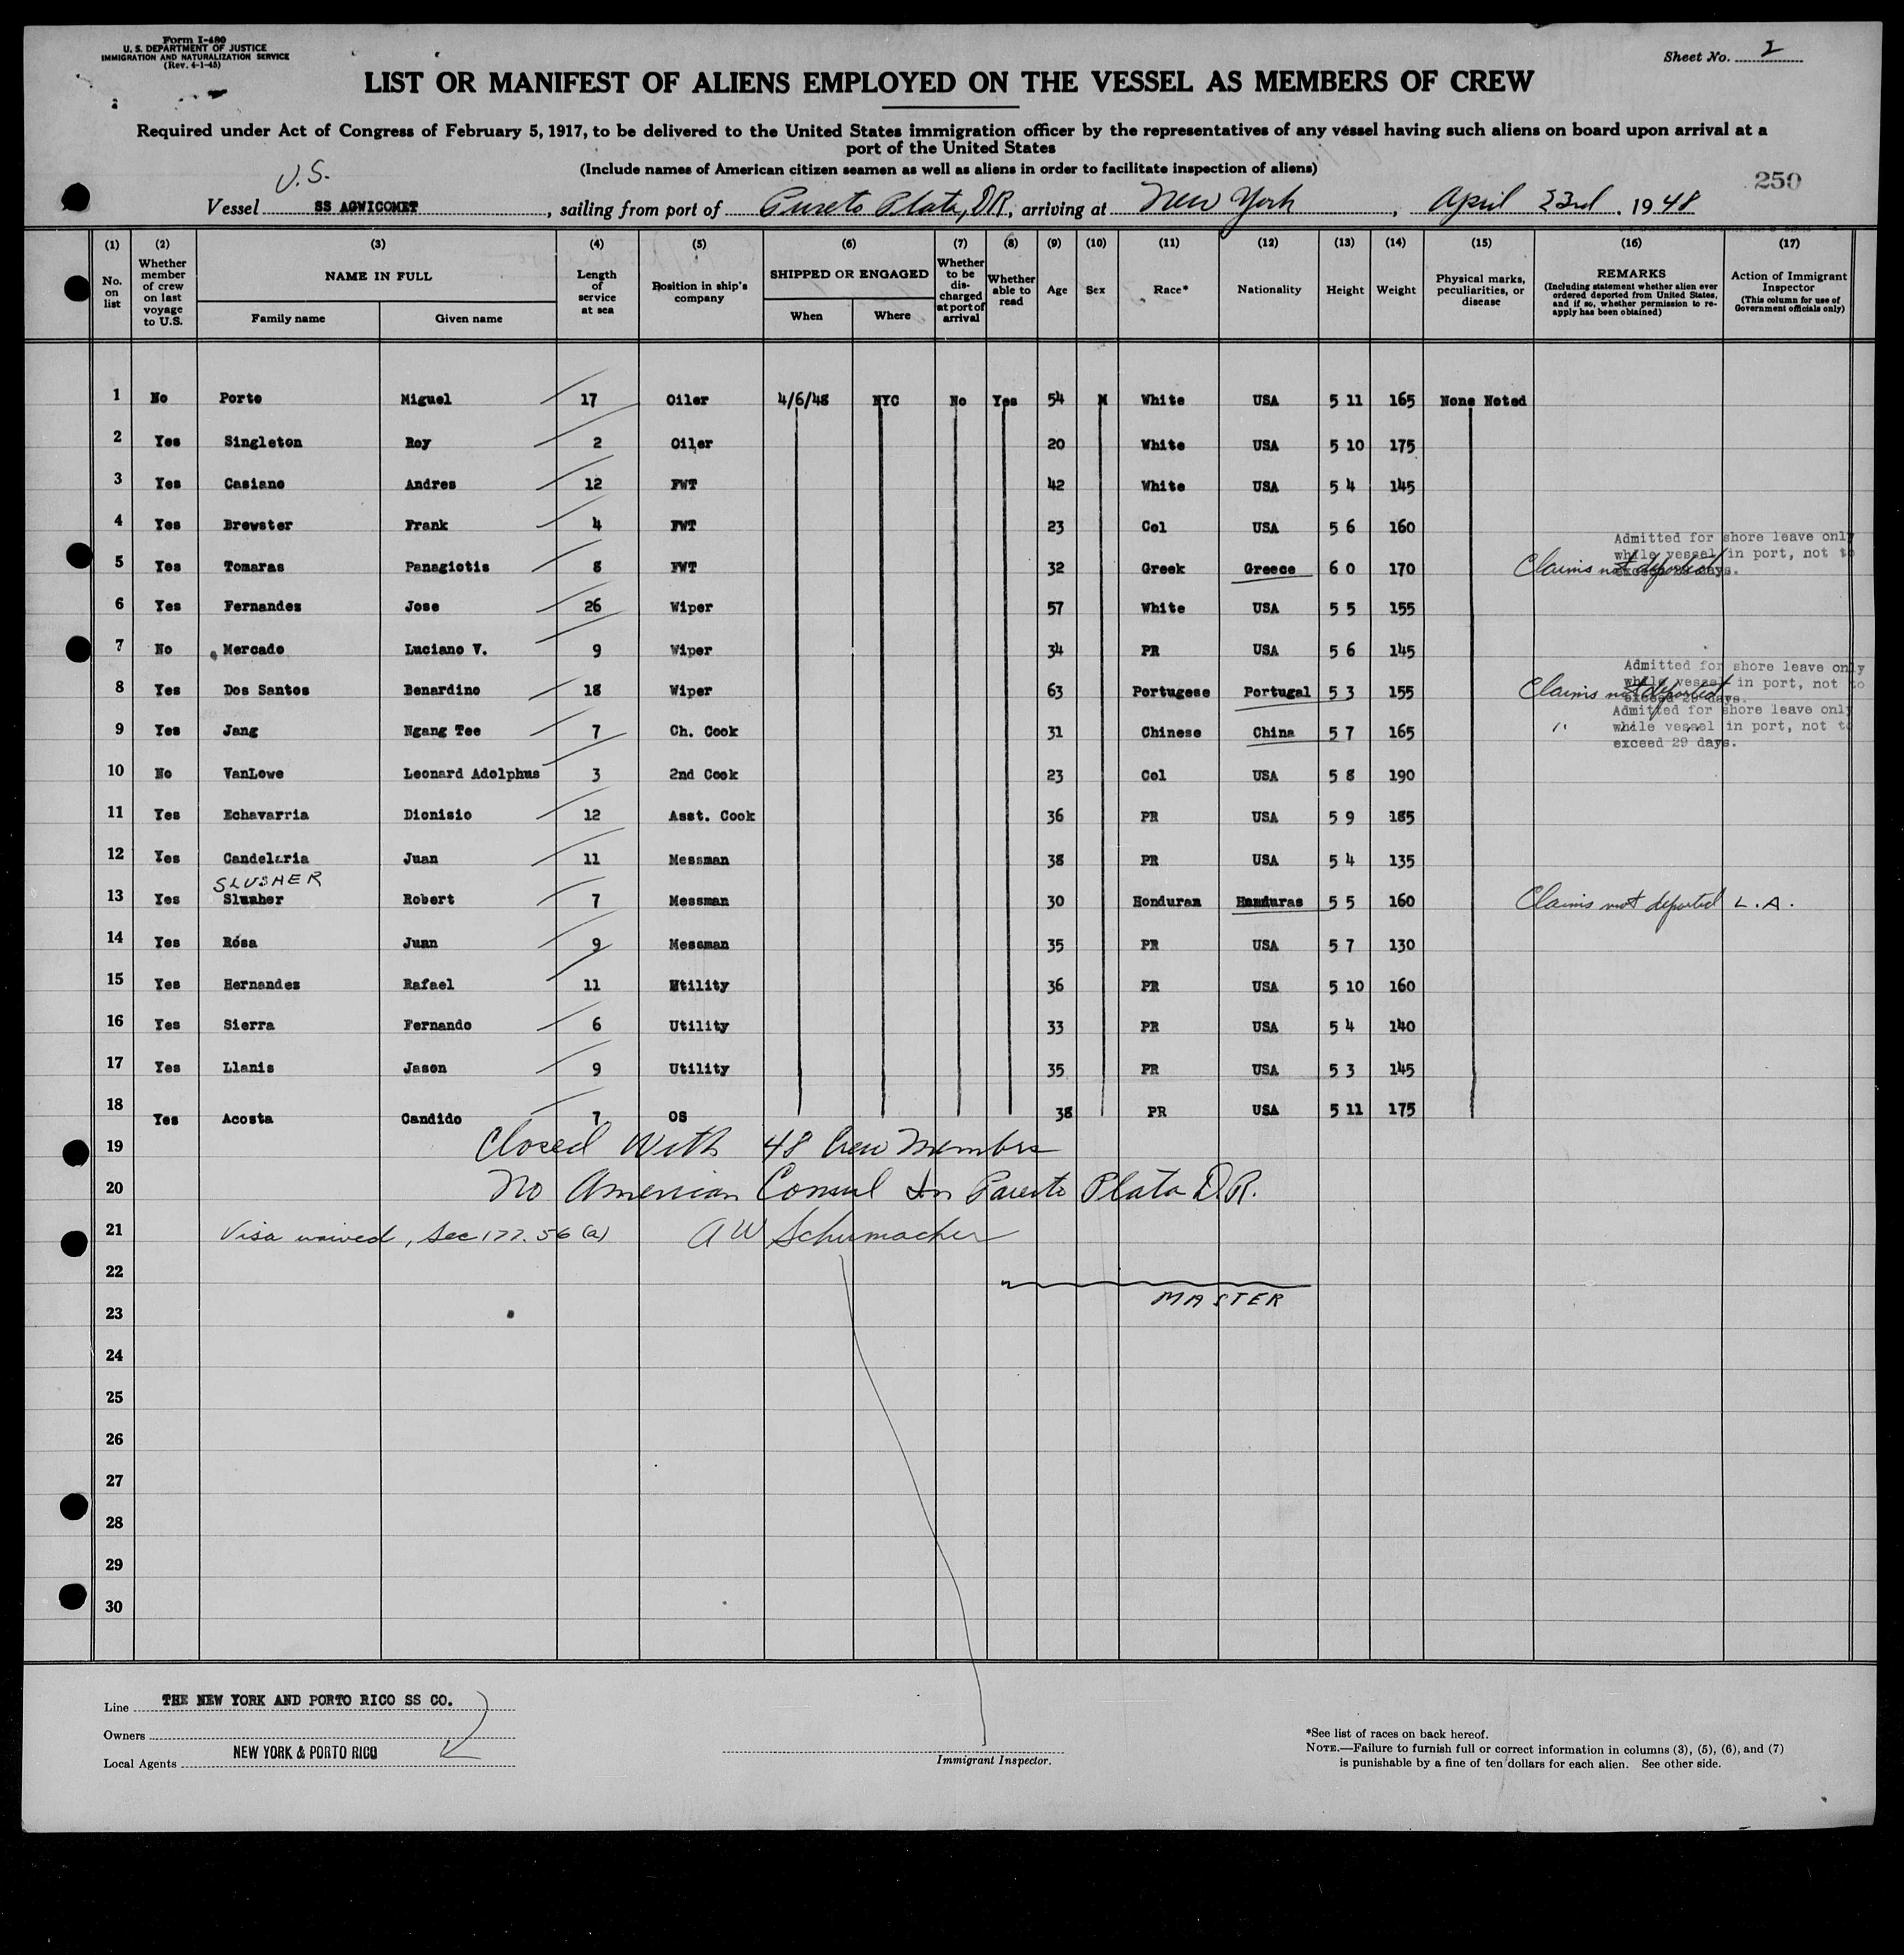 Form I-480
U. S. DEPARTMENT OF JUSTICE
IMMIGRATION AND NATURALIZATION SERVICE
(Rev. 4-1-45)
Sheet No. 2
LIST OR MANIFEST OF ALIENS EMPLOYED ON THE VESSEL AS MEMBERS OF CREW
Required under Act of Congress of February 5, 1917, to be delivered to the United States immigration officer by the representatives of any vessel having such aliens on board upon arrival at a
port of the United States
(Include names of American citizen seamen as well as aliens in order to facilitate inspection of aliens)
250
U.S.
Vessel SS AGWICOMET, sailing from port of Pureto Plata, DR, arriving at New York, April 23rd, 1948
(1) (2) (3) (4) (5) (6) (7) (8) (9) (10) (11) (12) (13) (14) (15) (16) (17)
No. on list
Whether member of crew on last voyage to U.S.
NAME IN FULL
Family name
Given name
Length of service at sea
Position in ship's company
SHIPPED OR ENGAGED
When
Where
Whether to be discharged at port of arrival
Whether able to read
Age
Sex
Race*
Nationality
Height
Weight
Physical marks, peculiarities, or disease
REMARKS
(Including statement whether alien ever ordered deported from United States, and if so, whether permission to reapply has been obtained)
Action of Immigrant Inspector
(This column for use of Government officials only)
1 No Porto Miguel 17 Oiler 4/6/48 NYC No Yes 54 M White USA 5 11 165 None Noted
2 Yes Singleton Roy 2 Oiler 20 White USA 5 10 175
3 Yes Casiano Andres 12 FWT 42 White USA 5 4 145
4 Yes Brewster Frank 4 FWT 23 Col USA 5 6 160
5 Yes Tomaras Panagiotis 8 FWT 32 Greek Greece 6 0 170 Claims not deported
Admitted for shore leave only
while vessel in port, not to
exceed 29 days.
6 Yes Fernandez Jose 26 Wiper 57 White USA 5 5 155
7 No Mercado Luciano V. 9 Wiper 34 PR USA 5 6 145
8 Yes Dos Santos Benardino 18 Wiper 63 Portugese Portugal 5 3 155 Claims not deported
Admitted for shore leave only
while vessel in port, not to
exceed 29 days.
9 Yes Jang Ngang Tee 7 Ch. Cook 31 Chinese China 5 7 165 " " "
Admitted for shore leave only
while vessel in port, not to
exceed 29 days.
10 No VanLowe Leonard Adolphus 3 2nd Cook 23 Col USA 5 8 190
11 Yes Echavarria Dionisio 12 Asst. Cook 36 PR USA 5 9 185
12 Yes Candelaria Juan 11 Messman 38 PR USA 5 4 135
SLUSHER
13 Yes Robert 7 Messman 30 Honduran Honduras 5 5 160 Claims not deported L.A.
14 Yes Rosa Juan 9 Messman 35 PR USA 5 7 130
15 Yes Hernandez Rafael 11 Utility 36 PR USA 5 10 160
16 Yes Sierra Fernando 6 Utility 33 PR USA 5 4 140
17 Yes Llanis Jason 9 Utility 35 PR USA 5 3 145
18 Yes Acosta Candido 7 OS 38 PR USA 5 11 175
19 Closed With 48 Crew Members
20 No American Consul In Puerto Plata D.R.
21 Visa waived, Sec 177.56 (a) A W Schumacher
22
MASTER
23
24
25
26
27
28
29
30
Line THE NEW YORK AND PORTO RICO SS CO.
Owners
Local Agents NEW YORK & PORTO RICO
Immigrant Inspector.
*See list of races on back hereof.
NOTE.—Failure to furnish full or correct information in columns (3), (5), (6), and (7)
is punishable by a fine of ten dollars for each alien. See other side.